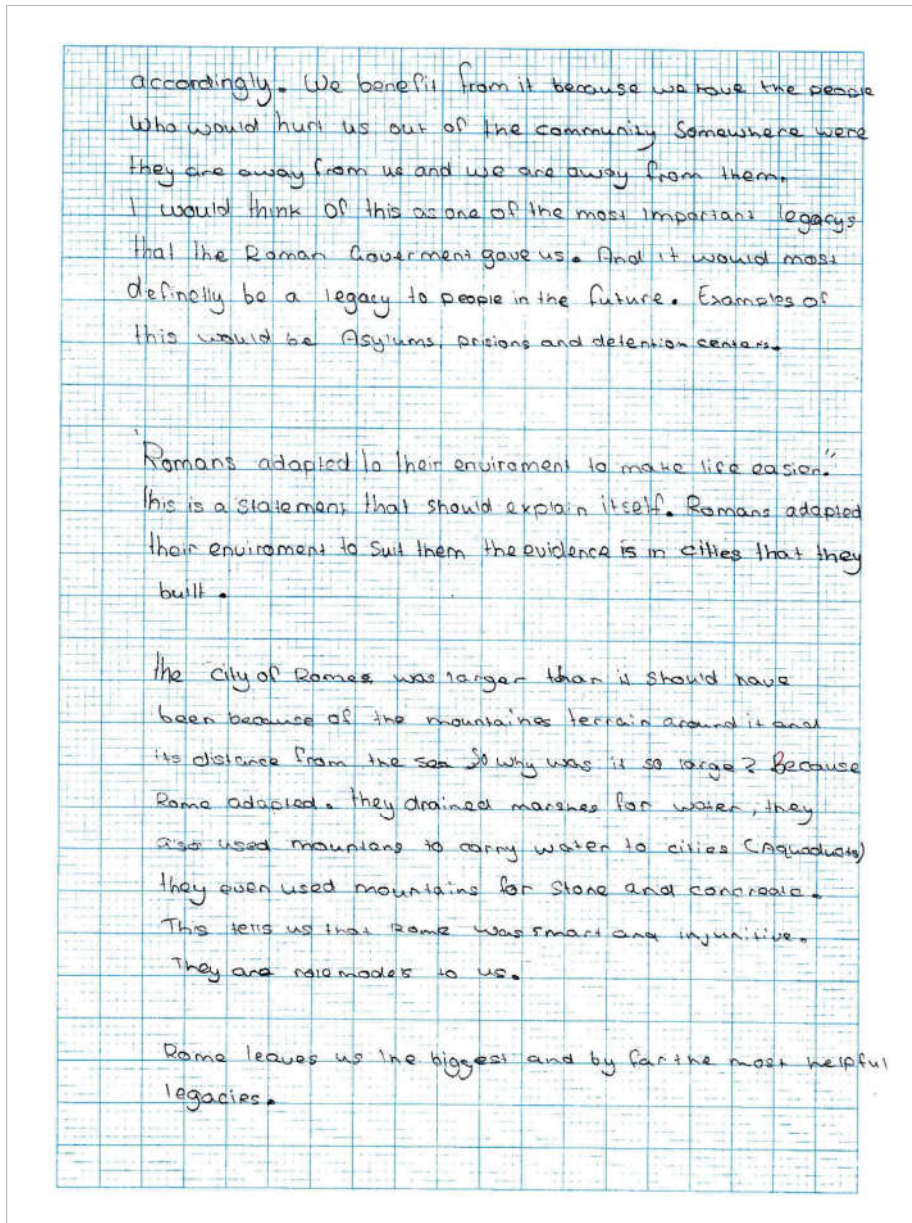 accordingly. We benefit from it because we have the people
Who would hurt us out of the community Somewhere were
they are away from us and we are away from them.
I would think of this as one of the most important legacys
that the Roman Goverment gave us. And it would most
definetly be a legacy to people in the future. Examples of
this would be Asylums, prisions and detention centers.
"Romans adapted to their enviroment to make life easier."
this is a statement that should explain itself. Romans adapted
their enviroment to suit them the evidence is in cities that they
built.
the city of Romes was larger than it should have
been because of the mountaines terrain around it and
its distance from the sea So why was it so large? Because
Rome adapted. they drained marshes for water, they
also used mountans to carry water to cities (Aquaducts)
they even used mountains for stone and concreate.
This tells us that Rome was smart and injunitive.
They are rolemodels to us.
Rome leaves us the biggest and by far the most helpful
legacies.